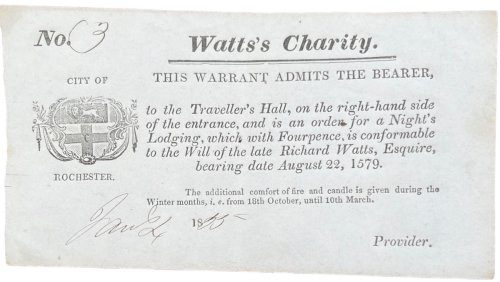 No. 3
Watts's Charity.
CITY OF
ROCHESTER.
THIS WARRANT ADMITS THE BEARER,
to the Traveller's Hall, on the right-hand side
of the entrance, and is an order for a Night's
Lodging, which with Fourpence, is conformable
to the Will of the late Richard Watts, Esquire,
bearing date August 22, 1579.
The additional comfort of fire and candle is given during the
Winter months, i. e. from 18th October, until 10th March.
18
Provider.